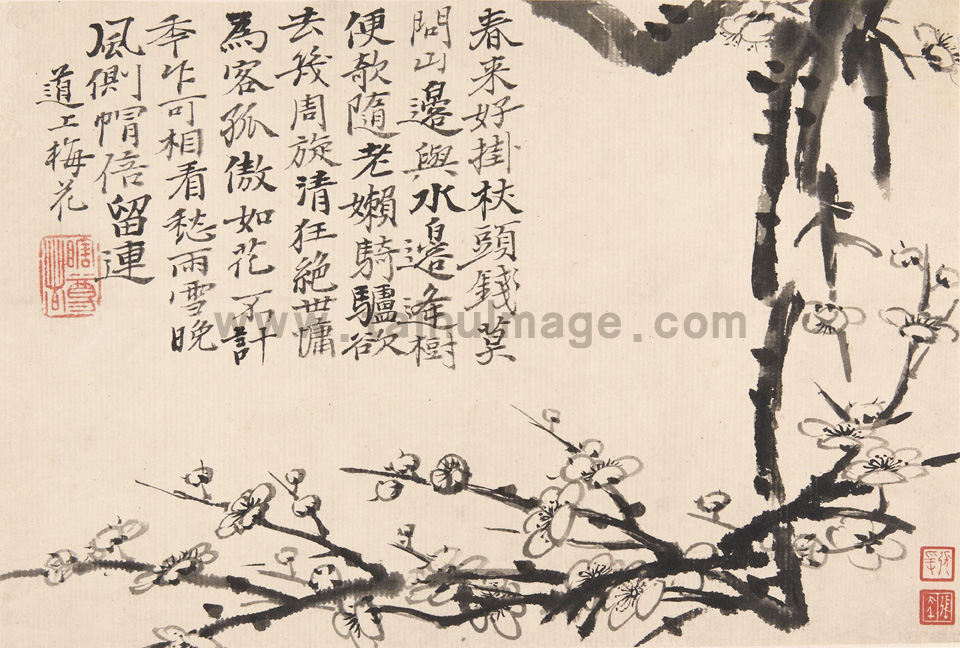 春来好掛杖頭錢莫
問山邊與水邊逢樹
便欹隨老嬾騎驢欲
去幾周旋清狂絕世慵
為客孤傲如花不計
年乍可相看愁雨雪晚
風側帽倍留連
道上梅花
瞎尊者
www.taihuimage.com